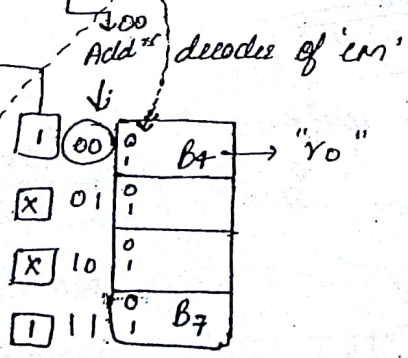 00
Addrs decoder of 'cm'
i
1 00 0 1 B4 → "r0"
X 01 0 1
X 10 0 1
1 11 0 1 B7